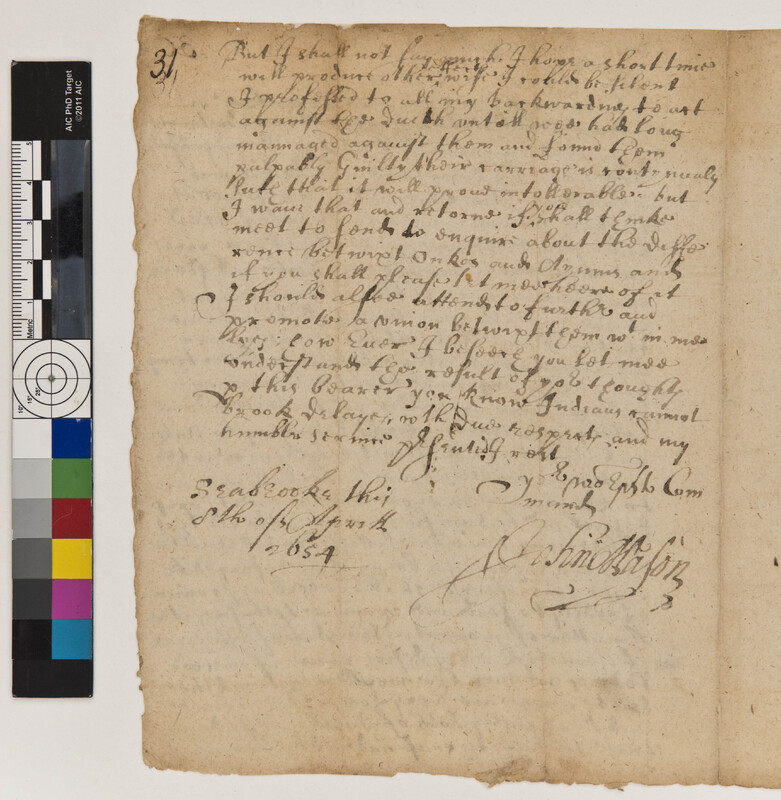 31
But I shall not say much I hope a short time
will produce other wise effects I could be silent
I professed to all my backwardnes to act
against the duch untill wee had long
mannaged against them and found them
palpably Guilty their carriage is contynually
such that it will proue intollerable but
I waue that and retorne if you shall thinke
meet to send to enquire about the diffe
rence betwixt Onkos and
if you shall please let mee heere of it
I should alsoe attend to further and
promote a vnion betwixt them wt in me
lyes: how Euer I beseech you let mee
vnderstand the result of yor thoughts
p this bearer you know Indians cannot
brook delayes, with due respects and my
humble service psented rest
yor worps to Com
mand
Seabrooke this
8th of Aprill
1654
John Mason
AIC PhD Target
©2011 AIC
Metric
1
2
3
4
5